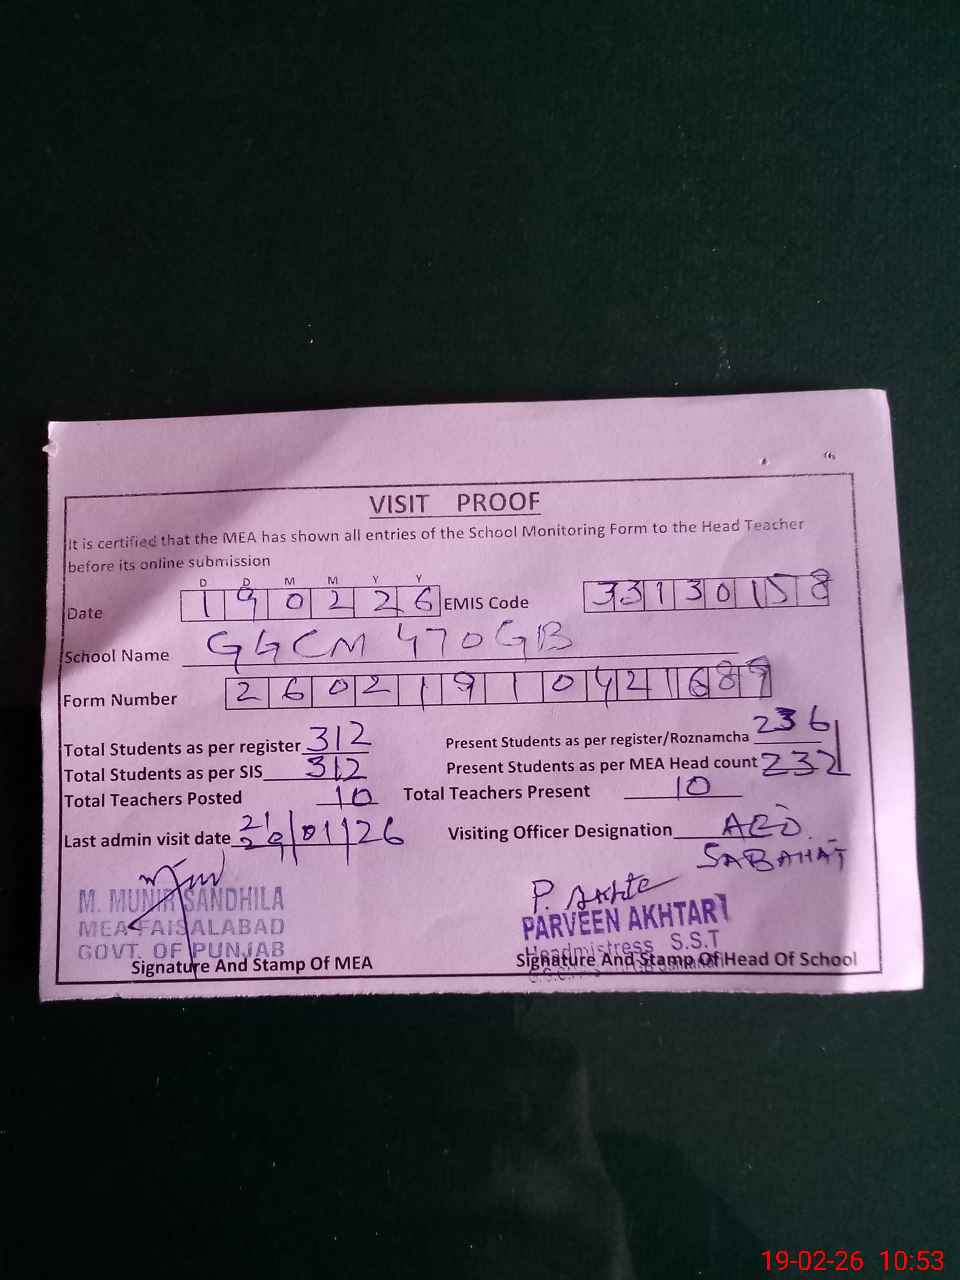 VISIT PROOF
It is certified that the MEA has shown all entries of the School Monitoring Form to the Head Teacher
before its online submission
D D M M Y Y
Date 190226 EMIS Code 33130158
School Name GGCM 470GB
Form Number 2602191042168
Total Students as per register 312 Present Students as per register/Roznamcha 236
Total Students as per SIS 312 Present Students as per MEA Head count 232
Total Teachers Posted 10 Total Teachers Present 10
Last admin visit date /01/26 Visiting Officer Designation AEO
SABAHAT
P. Akhte
M. MUNIR SANDHILA
PARVEEN AKHTAR
MEA FAISALABAD
Headmistress S.S.T
GOVT. OF PUNJAB
Signature And Stamp Of MEA Signature And Stamp Of Head Of School
19-02-26 10:53